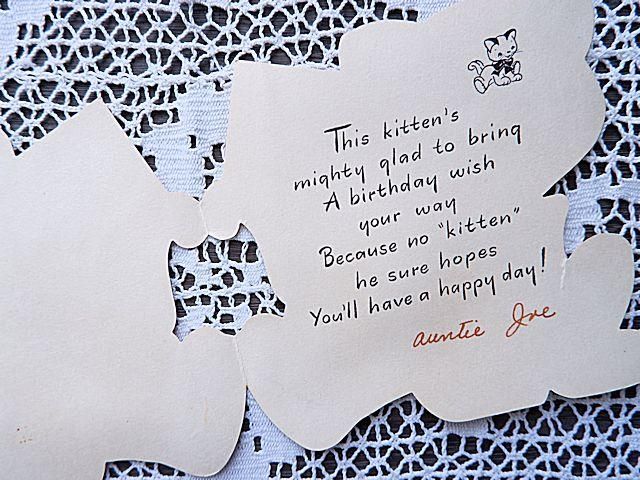 This kitten's
mighty glad to bring
A birthday wish
your way
Because no "kitten"
he sure hopes
You'll have a happy day!
auntie Ive